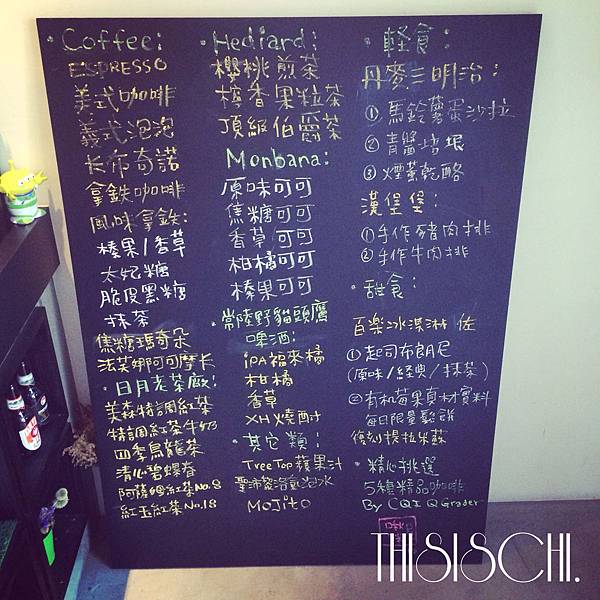 Coffee:
ESPRESSO
美式咖啡
義式泡泡
卡布奇諾
拿鐵咖啡
風味拿鐵:
榛果/香草
太妃糖
脆皮黑糖
抹茶
焦糖瑪奇朵
法芙娜阿可摩卡
·日月老茶廠:
美森特調紅茶
特調紅茶牛奶
四季烏龍茶
清心碧螺春
阿薩姆紅茶No.8
紅玉紅茶No.18
·Hediard:
櫻桃煎茶
檸香果粒茶
頂級伯爵茶
Monbana:
原味可可
焦糖可可
香草可可
柑橘可可
榛果可可
·常陸野貓頭鷹
啤酒:
iPA福來橘
柑橘
香草
XH燒酎
·其它類:
TreeTop蘋果汁
聖沛黎洛氣泡水
Mojito
·輕食:
丹麥三明治:
①馬鈴薯蛋沙拉
②青醬培根
③煙燻乾酪
漢堡堡:
①手作豬肉排
②手作牛肉排
·甜食:
百樂冰淇淋 佐
①起司布朗尼
(原味/經典/抹茶)
②有機莓果夏材實料
每日限量鬆餅
復刻提拉米蘇
·精心挑選
5種精品咖啡
By CQI Q Grader
THISISCHI.